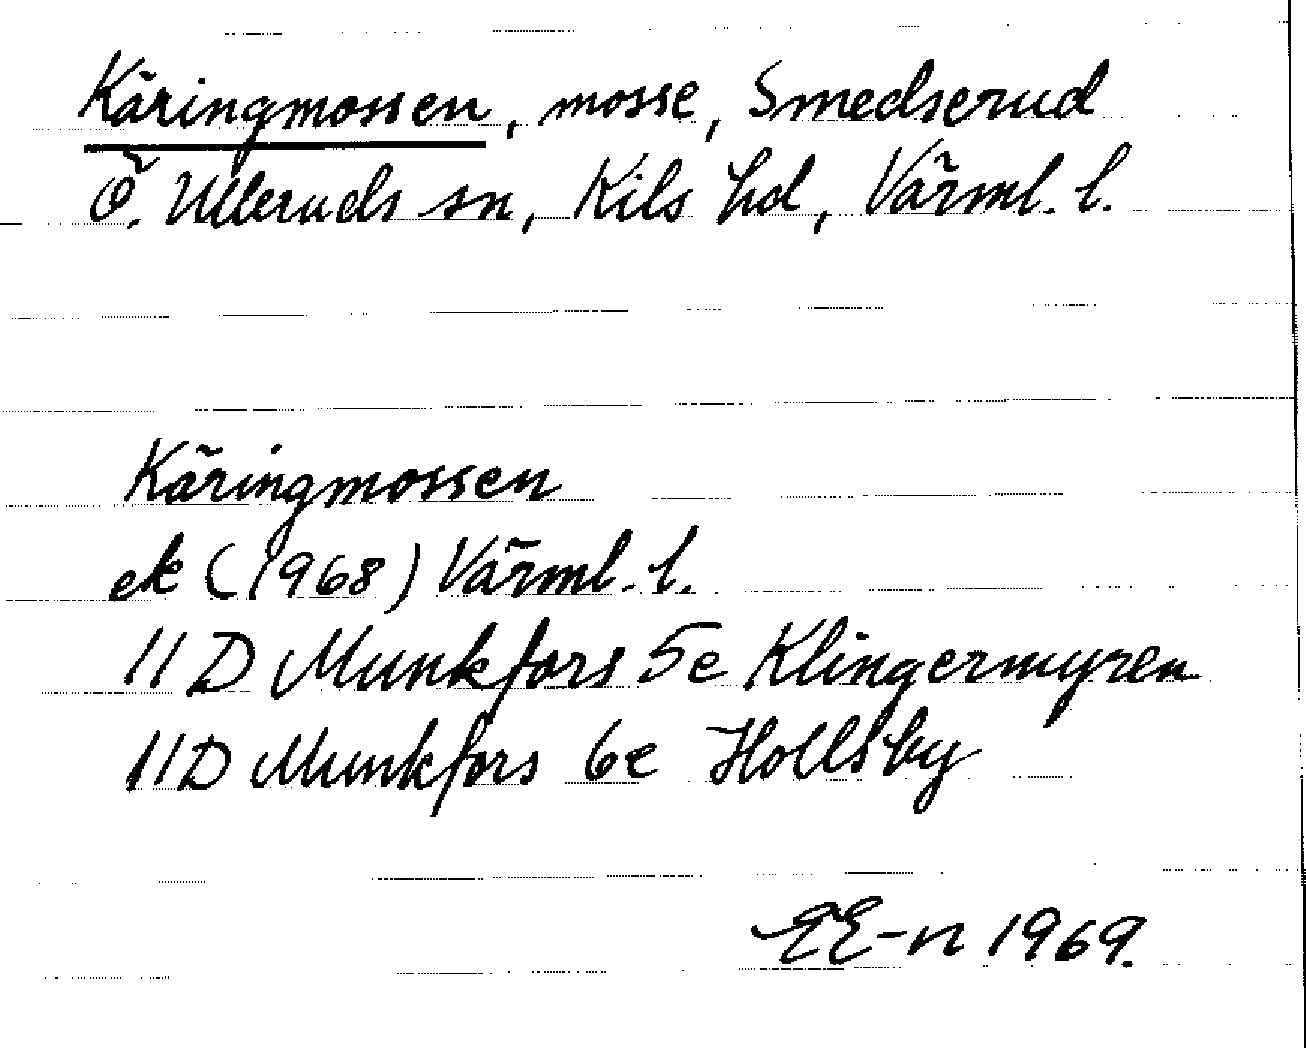 Käringmossen, mosse, Smedserud
Ö. Ulleruds sn, Kils hd, Värml. l.
Käringmossen
ek (1968) Värml. l.
11 D Munkfors 5e Klingermyren
11D Munkfors 6e Hollsby
EE-n 1969.